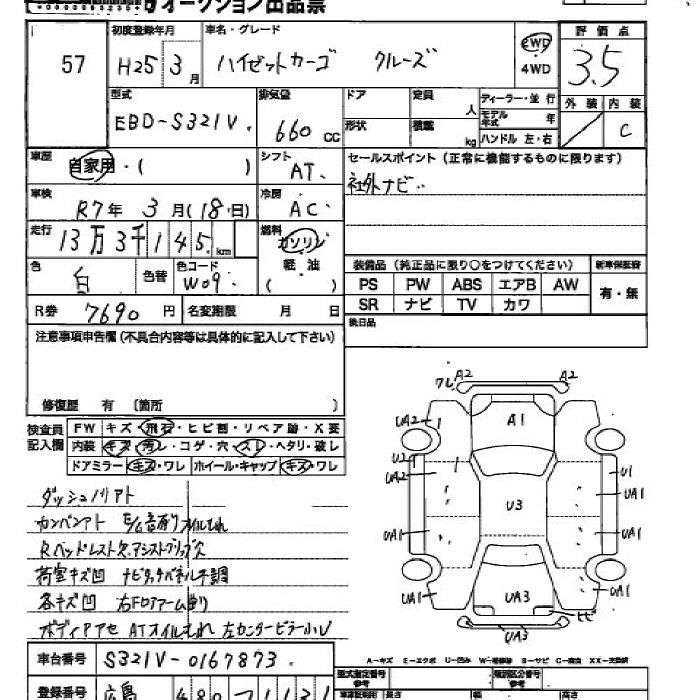 オークション出品票
57
初度登録年月 H25年 3月
車名・グレード ハイゼットカーゴ クルーズ
2WD
4WD
評価点 3.5
外装 内装 C
型式 EBD-S321V
排気量 660 cc
ドア 定員 人
形状 積載 kg
ディーラー・並行
モデル年式 年
ハンドル 左・右
車歴 自家用・( )
シフト AT
セールスポイント(正常に機能するものに限ります)
社外ナビ
車検 R7年 3月(18日)
冷房 AC
走行 13万3千145km
燃料 ガソリン 軽・油 ( )
色 白 色替 色コード W09
装備品(純正品に限り○をつけてください) 新車保証書
PS PW ABS エアB AW 有・無
SR ナビ TV カワ
R券 7690円 名変期限 月 日
後日品
注意事項申告欄(不具合内容等は具体的に記入して下さい)
修復歴 有 〔箇所 〕
検査員記入欄
FW キズ・飛石・ヒビ割・リペア跡・X要
内装 キズ・汚レ・コゲ・穴・スレ・ヘタリ・破レ
ドアミラー キズ・ワレ ホイール・キャップ キズ・ワレ
ダッシュノリアト
カンバンアト E/G音有り オイルもれ
Rヘッドレスト欠 アシストグリップ欠
荷室キズ凹 ナビタッチパネル不調
各キズ凹
ボディアセ ATオイルもれ 左センターピラー小U
A2 A2
ワレ
A1
UA2
U2
UA2
U1
UA1
U3
UA1
UA1
UA1
UA1
UA3
ヒビ
UA3
A-キズ E-エクボ U-凹み W-補修跡 S-サビ C-腐食 XX-交換済
車台番号 S321V-0167873
型式指定番号 参考
類別区分番号 参考
登録番号 広島 480
長さ 幅 高さ